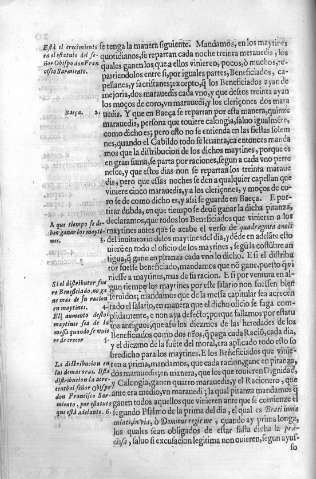 Está el crecimiento
en el estatuto del se-
ñor Obispo don Fran
cisco Sarmiento.
Baeça.
A que tiempo se de-
uen ganar los maytí-
nes.
Si el distribuidor fue
re Beneficiado, no ga
ne mas de su racion
en maytines.
El aumento destos
maytines sea de la
mesa quando se vuie
re de crecer
La distribucion en
las demas oras. Esta
distribucion la acre-
centó el señor Obispo
don Francisco Sar-
miento, por estatuto
que está adelante. 6.
se tenga la manera siguiente. Mandamos, en los maytines
quotidianos, se repartan cada noche treinta marauedis, los
quales ganen los que a ellos vinieren, pocos, ò muchos, re-
partiendolos entre si, por iguales partes, Beneficiados, ca-
pellanes, y sacristanes: excepto, que los Beneficiados ayan de
mejoria, dos marauedis cada vno, y que destos treinta ayan
los moços de coro, vn marauedi, y los clerigones dos mara
uedis. Y que en Baeça se reparta por esta manera, quinze
marauedis, persona que touiere calongia, salvo igualmente,
como dicho es; pero esto no se entienda en las fiestas solem
nes, quando el Cabildo todo se leuanta, ca entonces manda
mos que la distribucion de los dichos maytines, porque es
en gran suma, se parta por raciones, segun a cada vno perte
nesce, y que estos dias non se repartan los treinta maraue
dis, pero que essas noches se den a qualquier capellan que
viniere cinco marauedis, y a los clerigones, y moços de co-
ro se de como dicho es, y assi se guarde en Baeça. E por
tirar dubda, en que tiempo se deue ganar la dicha pitança,
declaramos, que todos los Beneficiados que vinieren a los
maytines antes que se acabe el verso de quadragena annis
del inuitatorio de los maytines del dia, y dende en adelante estu
uieren en todo el oficio de los maytines, segun la costumbre an
tigua, que gane en pitanças cada vno lo dicho. E si el distribui
dor fuesse beneficiado, mandamos que no gane, puesto que vi
niesse a maytines, mas de su racion. E si por ventura en al-
gun tiempo los maytines por este salario non fuessen bien
seruidos; mandamos que de la mesa capitular sea acrecen
tado el salario, en manera que el dicho oficio se faga com-
plidamente, e non aya defecto; porque fallamos por estatu
tos antiguos, que assi los diezmos de las heredades de los
Beneficiados como dos años, que paga cada Racion, cada dia,
y el diezmo de la fuste del moral, era aplicado todo esto so
bredicho para los maytines. E los Beneficiados que vinie-
ren a prima, mandamos, que cada racion, gane en pitanças,
dos marauedis; en manera, que los que touieren Dignidad,
y Calongia, ganen quatro marauedis, y el Racionero, que
ante era medio, vn marauedi; la qual pitança mandamos que
ganen todos aquellos que vinieren ante que se comience el
segundo Psalmo de la prima del dia, el qual es Beati imma
culati, in via, ò Domini regine, quando ay prima longa,
los quales sean obligados de estar fasta dicha la pre-
ciosa, saluo si escusacion legitima non ouieren, segun ayus-
so